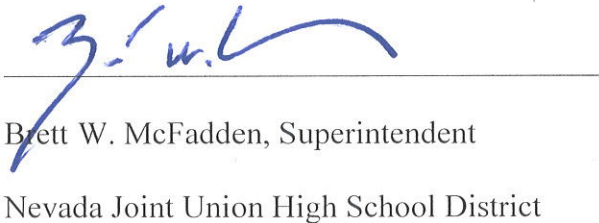 Brett W. McFadden, Superintendent
Nevada Joint Union High School District